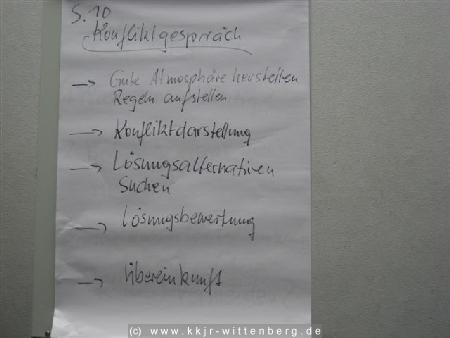 S. 10
Konfliktgespräch
→ Gute Atmosphäre herstellen
Regeln aufstellen
→ Konfliktdarstellung
→ Lösungsalternativen
suchen
→ Lösungsbewertung
→ Übereinkunft
(c) www.kkjr-wittenberg.de